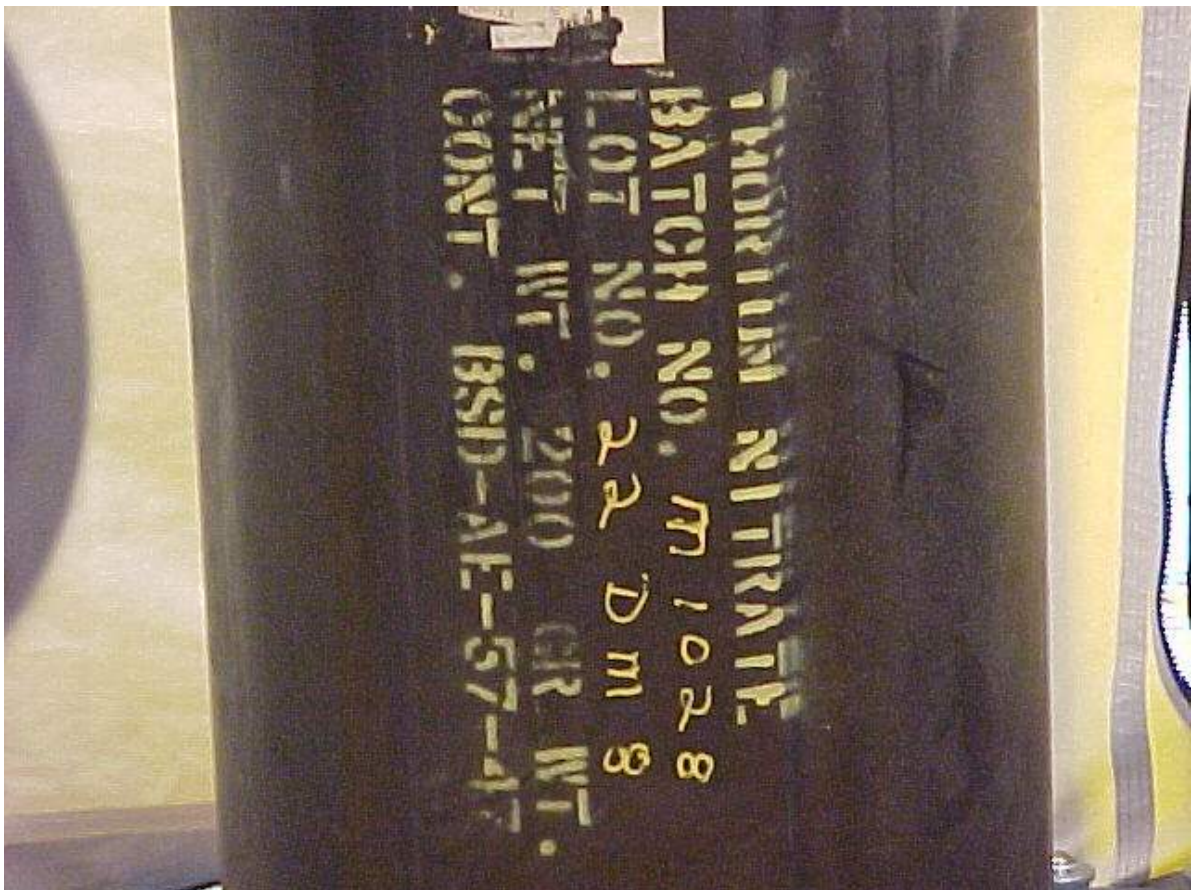 THORIUM NITRATE
BATCH NO. M1028
LOT NO. 22 DM8
NET WT. 200 GR WT.
CONT. BSD-AE-57-47